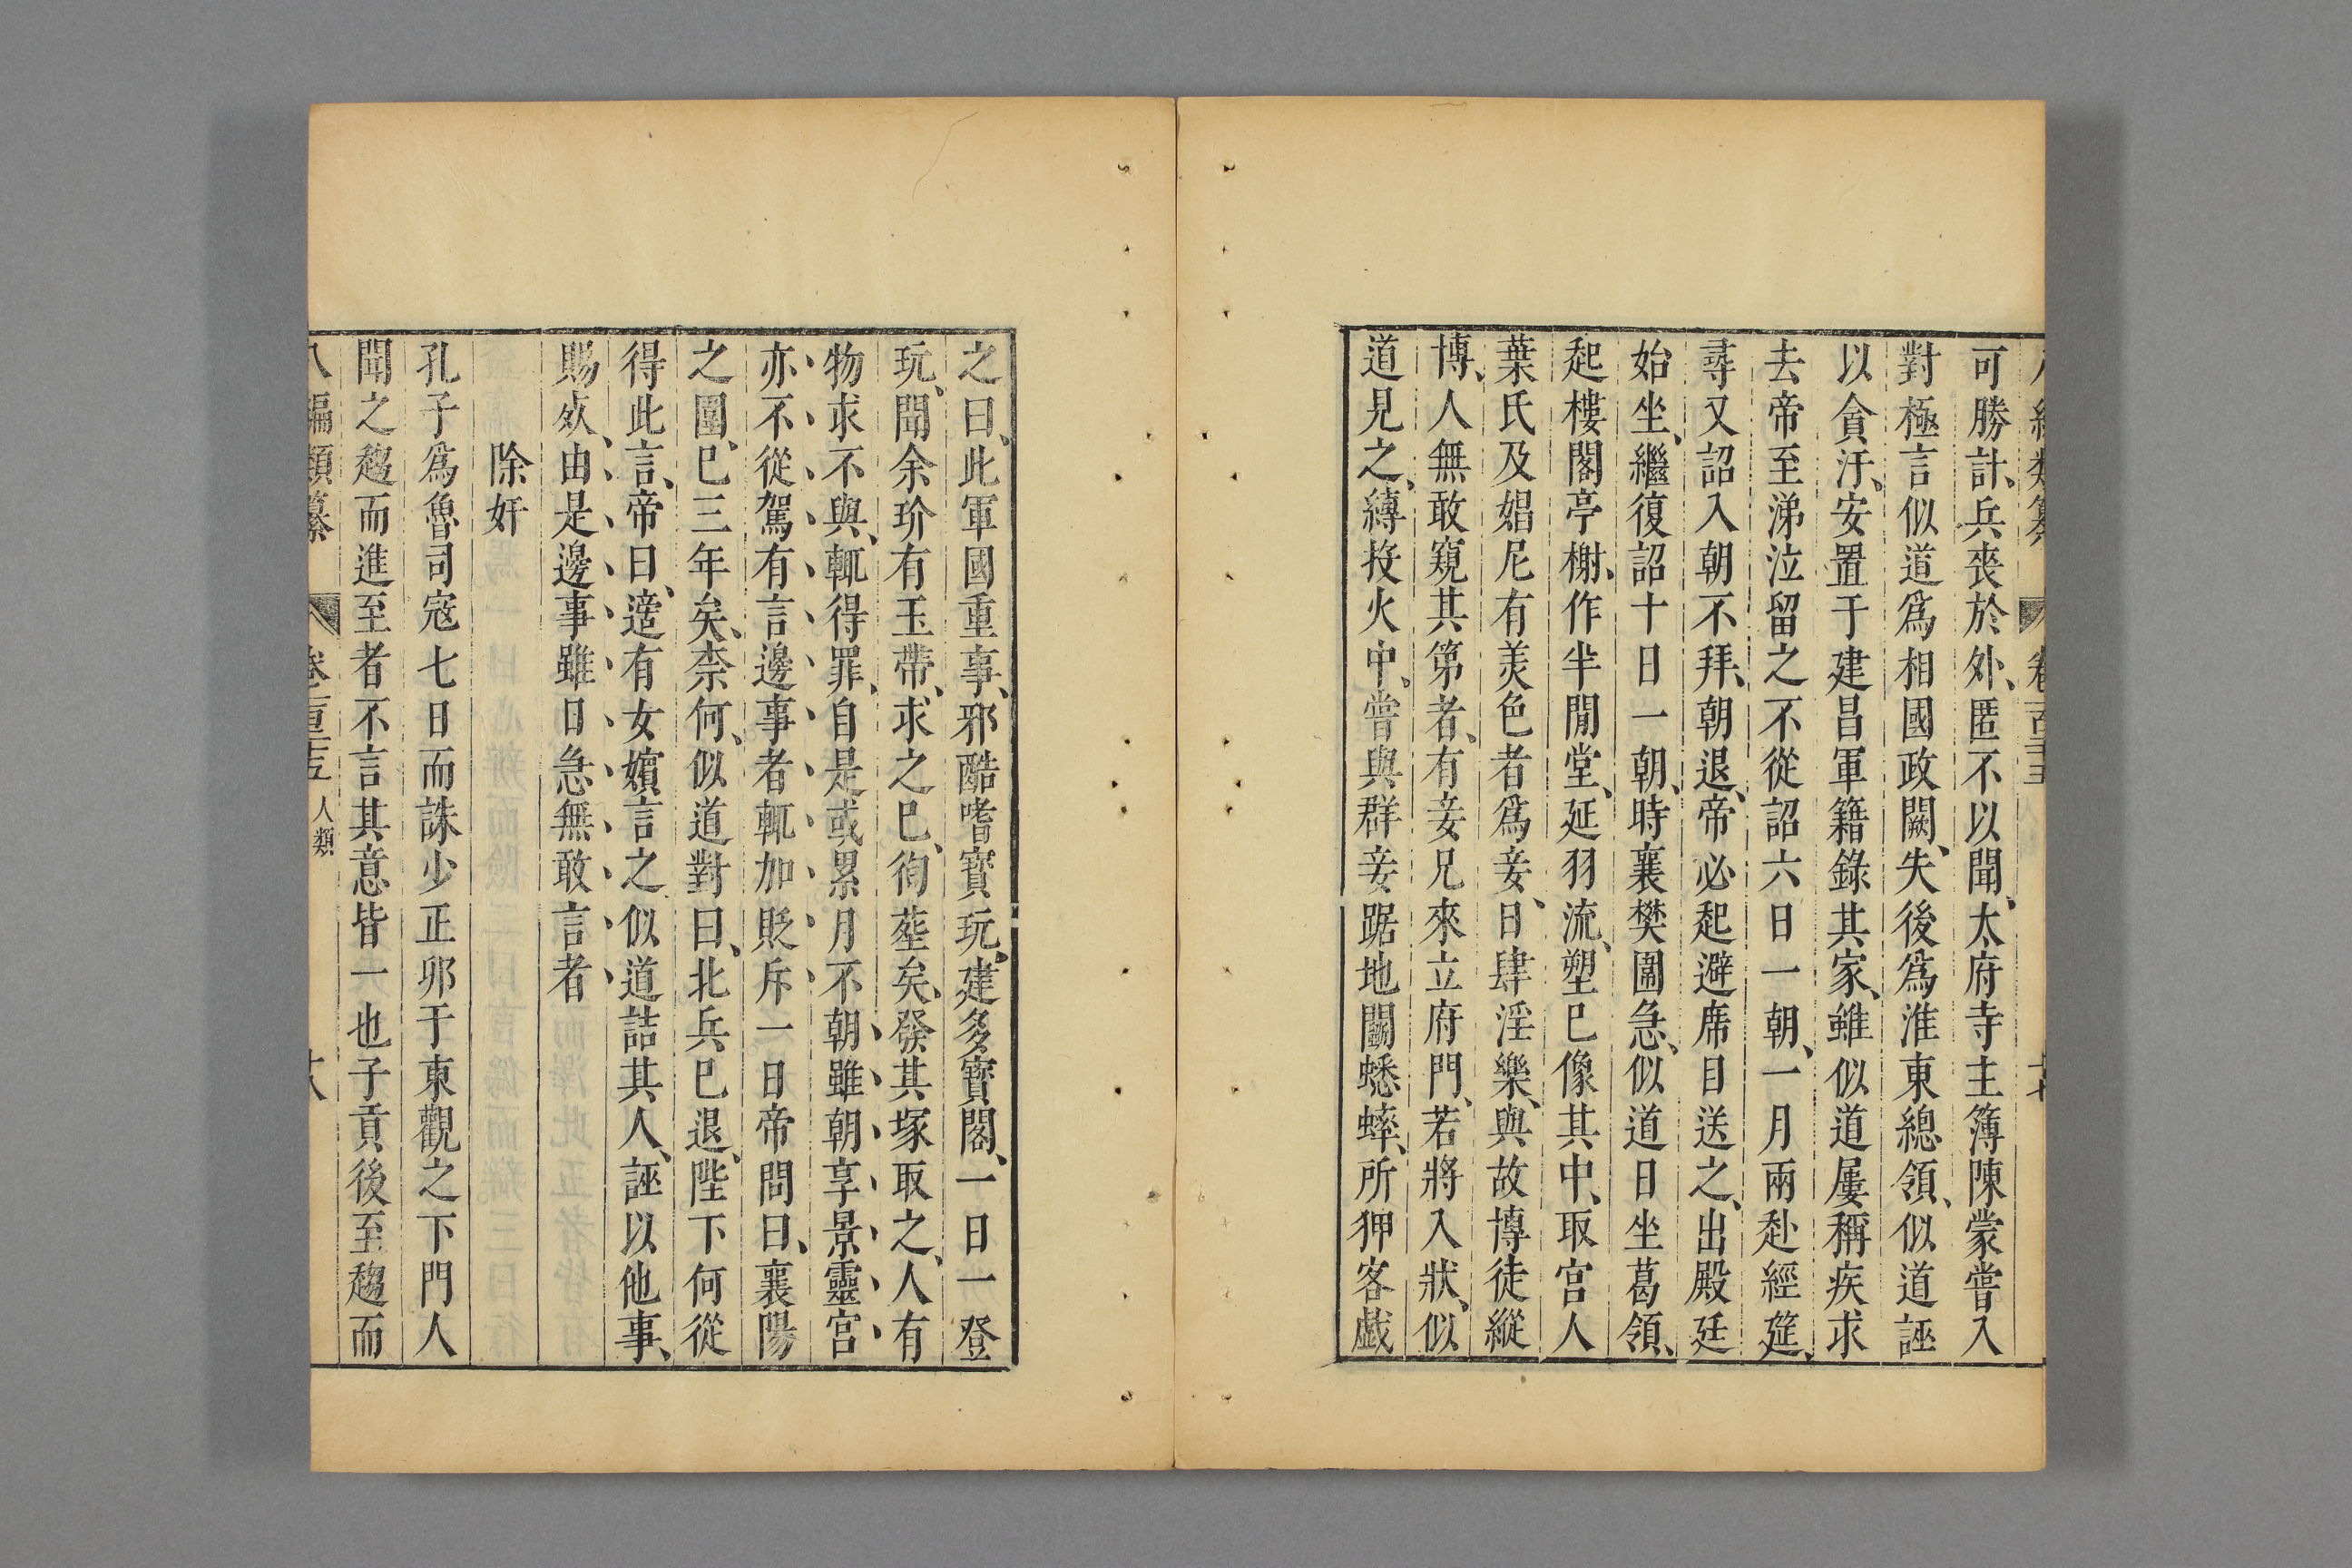 可勝計、兵喪於外、匿不以聞、太府寺主簿陳蒙嘗入
對極言似道爲相國政闕、失後爲淮東總領、似道誣
以貪汙、安置于建昌軍籍錄其家、雖似道屢稱疾求
去帝至涕泣留之不從詔六日一朝、一月兩赴經筵、
尋又詔入朝不拜、朝退、帝必起避席目送之、出殿廷
始坐、繼復詔十日一朝、時襄樊圍急、似道日坐葛領、
起樓閣亭榭、作半閒堂、延羽流、塑巳像其中、取宮人
葉氏及娼尼有美色者爲妾、日肆淫樂、與故博徒縱
博、人無敢窺其第者、有妾兄來立府門、若將入狀、似
道見之、縛投火中、嘗與群妾踞地鬬蟋蟀、所狎客戲
之曰、此軍國重事、邪酷嗜寶玩、建多寶閣、一日一登
玩、聞余玠有玉帶、求之巳、徇塟矣、發其塚取之、人有
物求不與、輒得罪、自是或累月不朝雖朝享景靈宮
亦不從駕有言邊事者輒加貶斥一日帝問曰、襄陽
之圍、巳三年矣、柰何、似道對曰、北兵巳退、陛下何從
得此言、帝曰、遆有女嬪言之似道詰其人、誣以他事、
賜死、由是邊事雖日急無敢言者
除奸
孔子爲魯司寇七日而誅少正卯于東觀之下門人
聞之趨而進至者不言其意皆一也子貢後至趨而
八編類纂 卷二百三十五 人類 十八